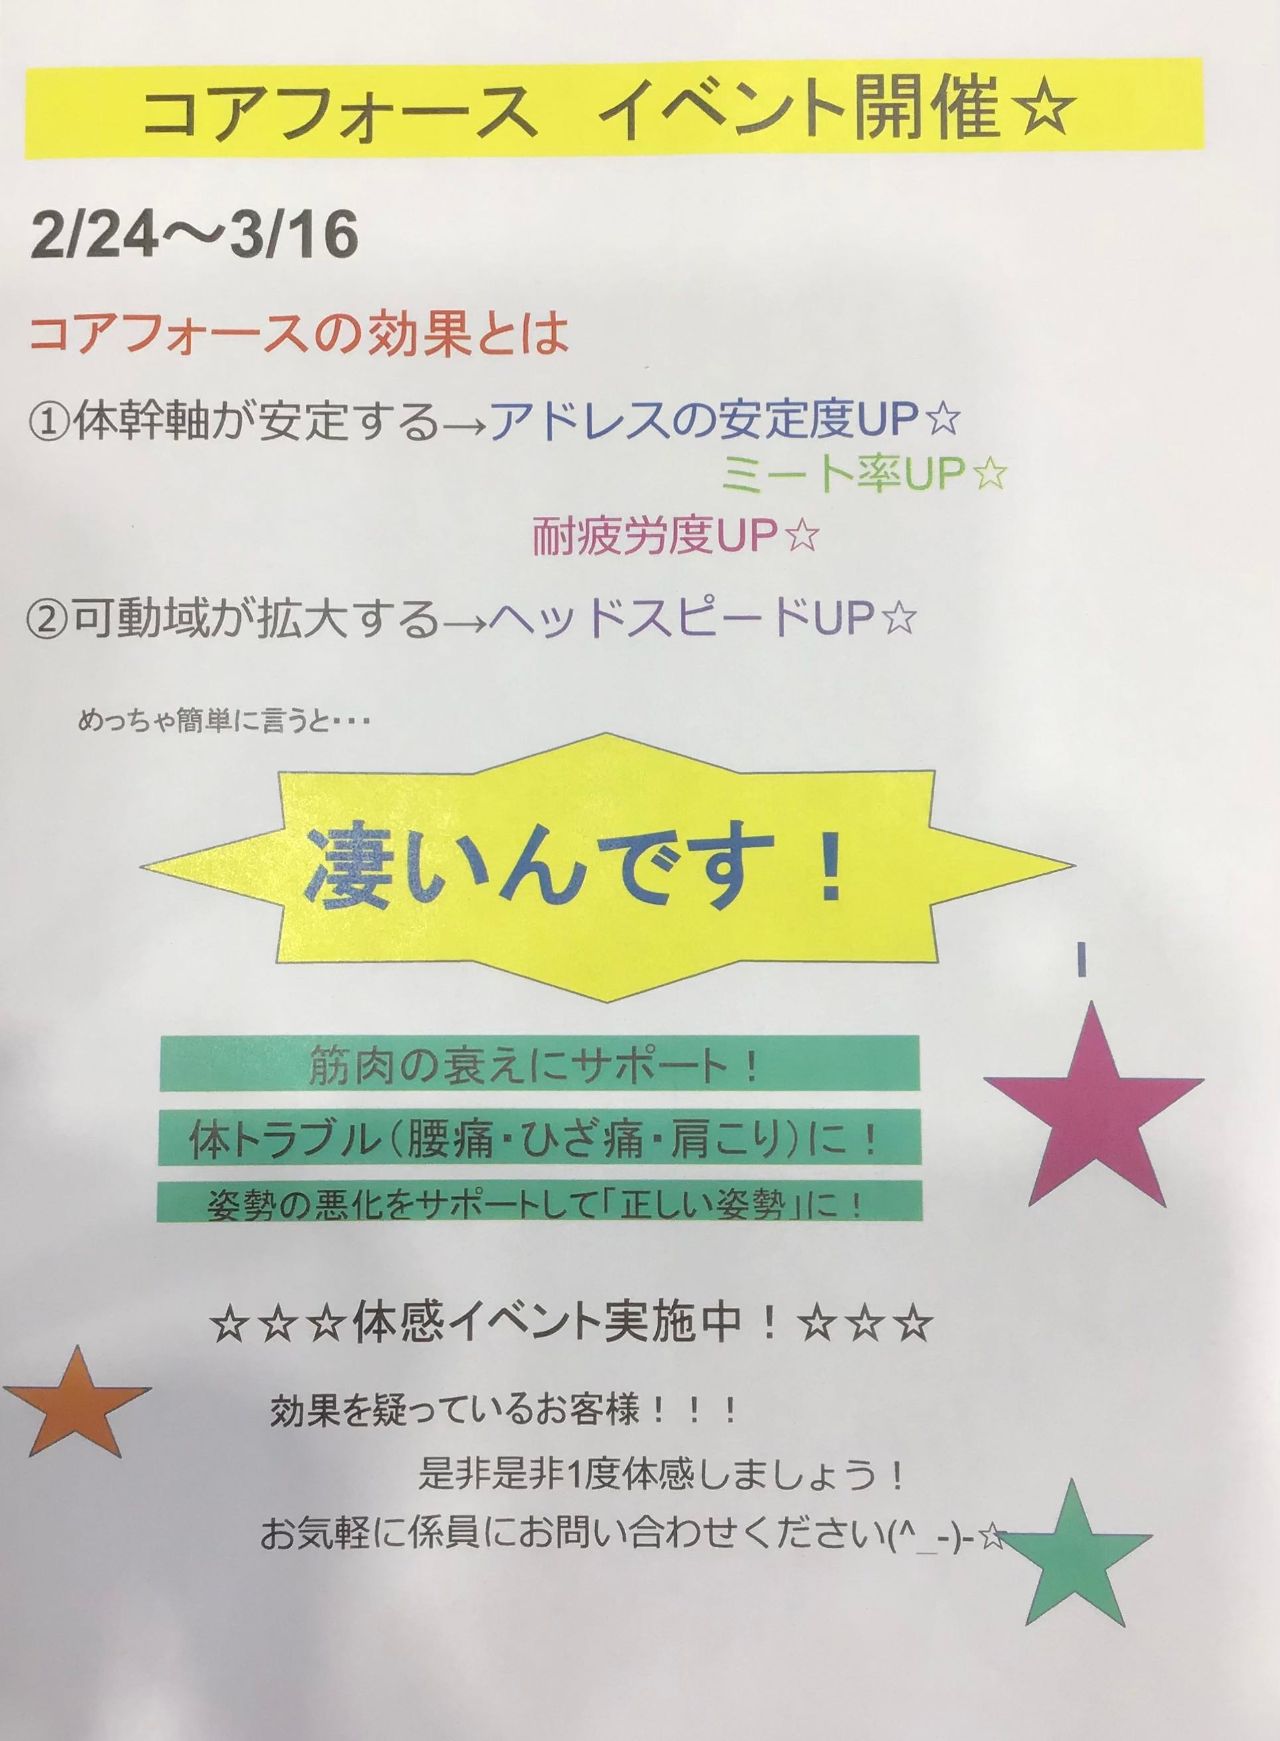 コアフォース　イベント開催☆
2/24～3/16
コアフォースの効果とは
①体幹軸が安定する→アドレスの安定度UP☆
ミート率UP☆
耐疲労度UP☆
②可動域が拡大する→ヘッドスピードUP☆
めっちゃ簡単に言うと・・・
凄いんです！
筋肉の衰えにサポート！
体トラブル（腰痛・ひざ痛・肩こり）に！
姿勢の悪化をサポートして「正しい姿勢」に！
☆☆☆体感イベント実施中！☆☆☆
効果を疑っているお客様！！！
是非是非1度体感しましょう！
お気軽に係員にお問い合わせください(^_-)-☆